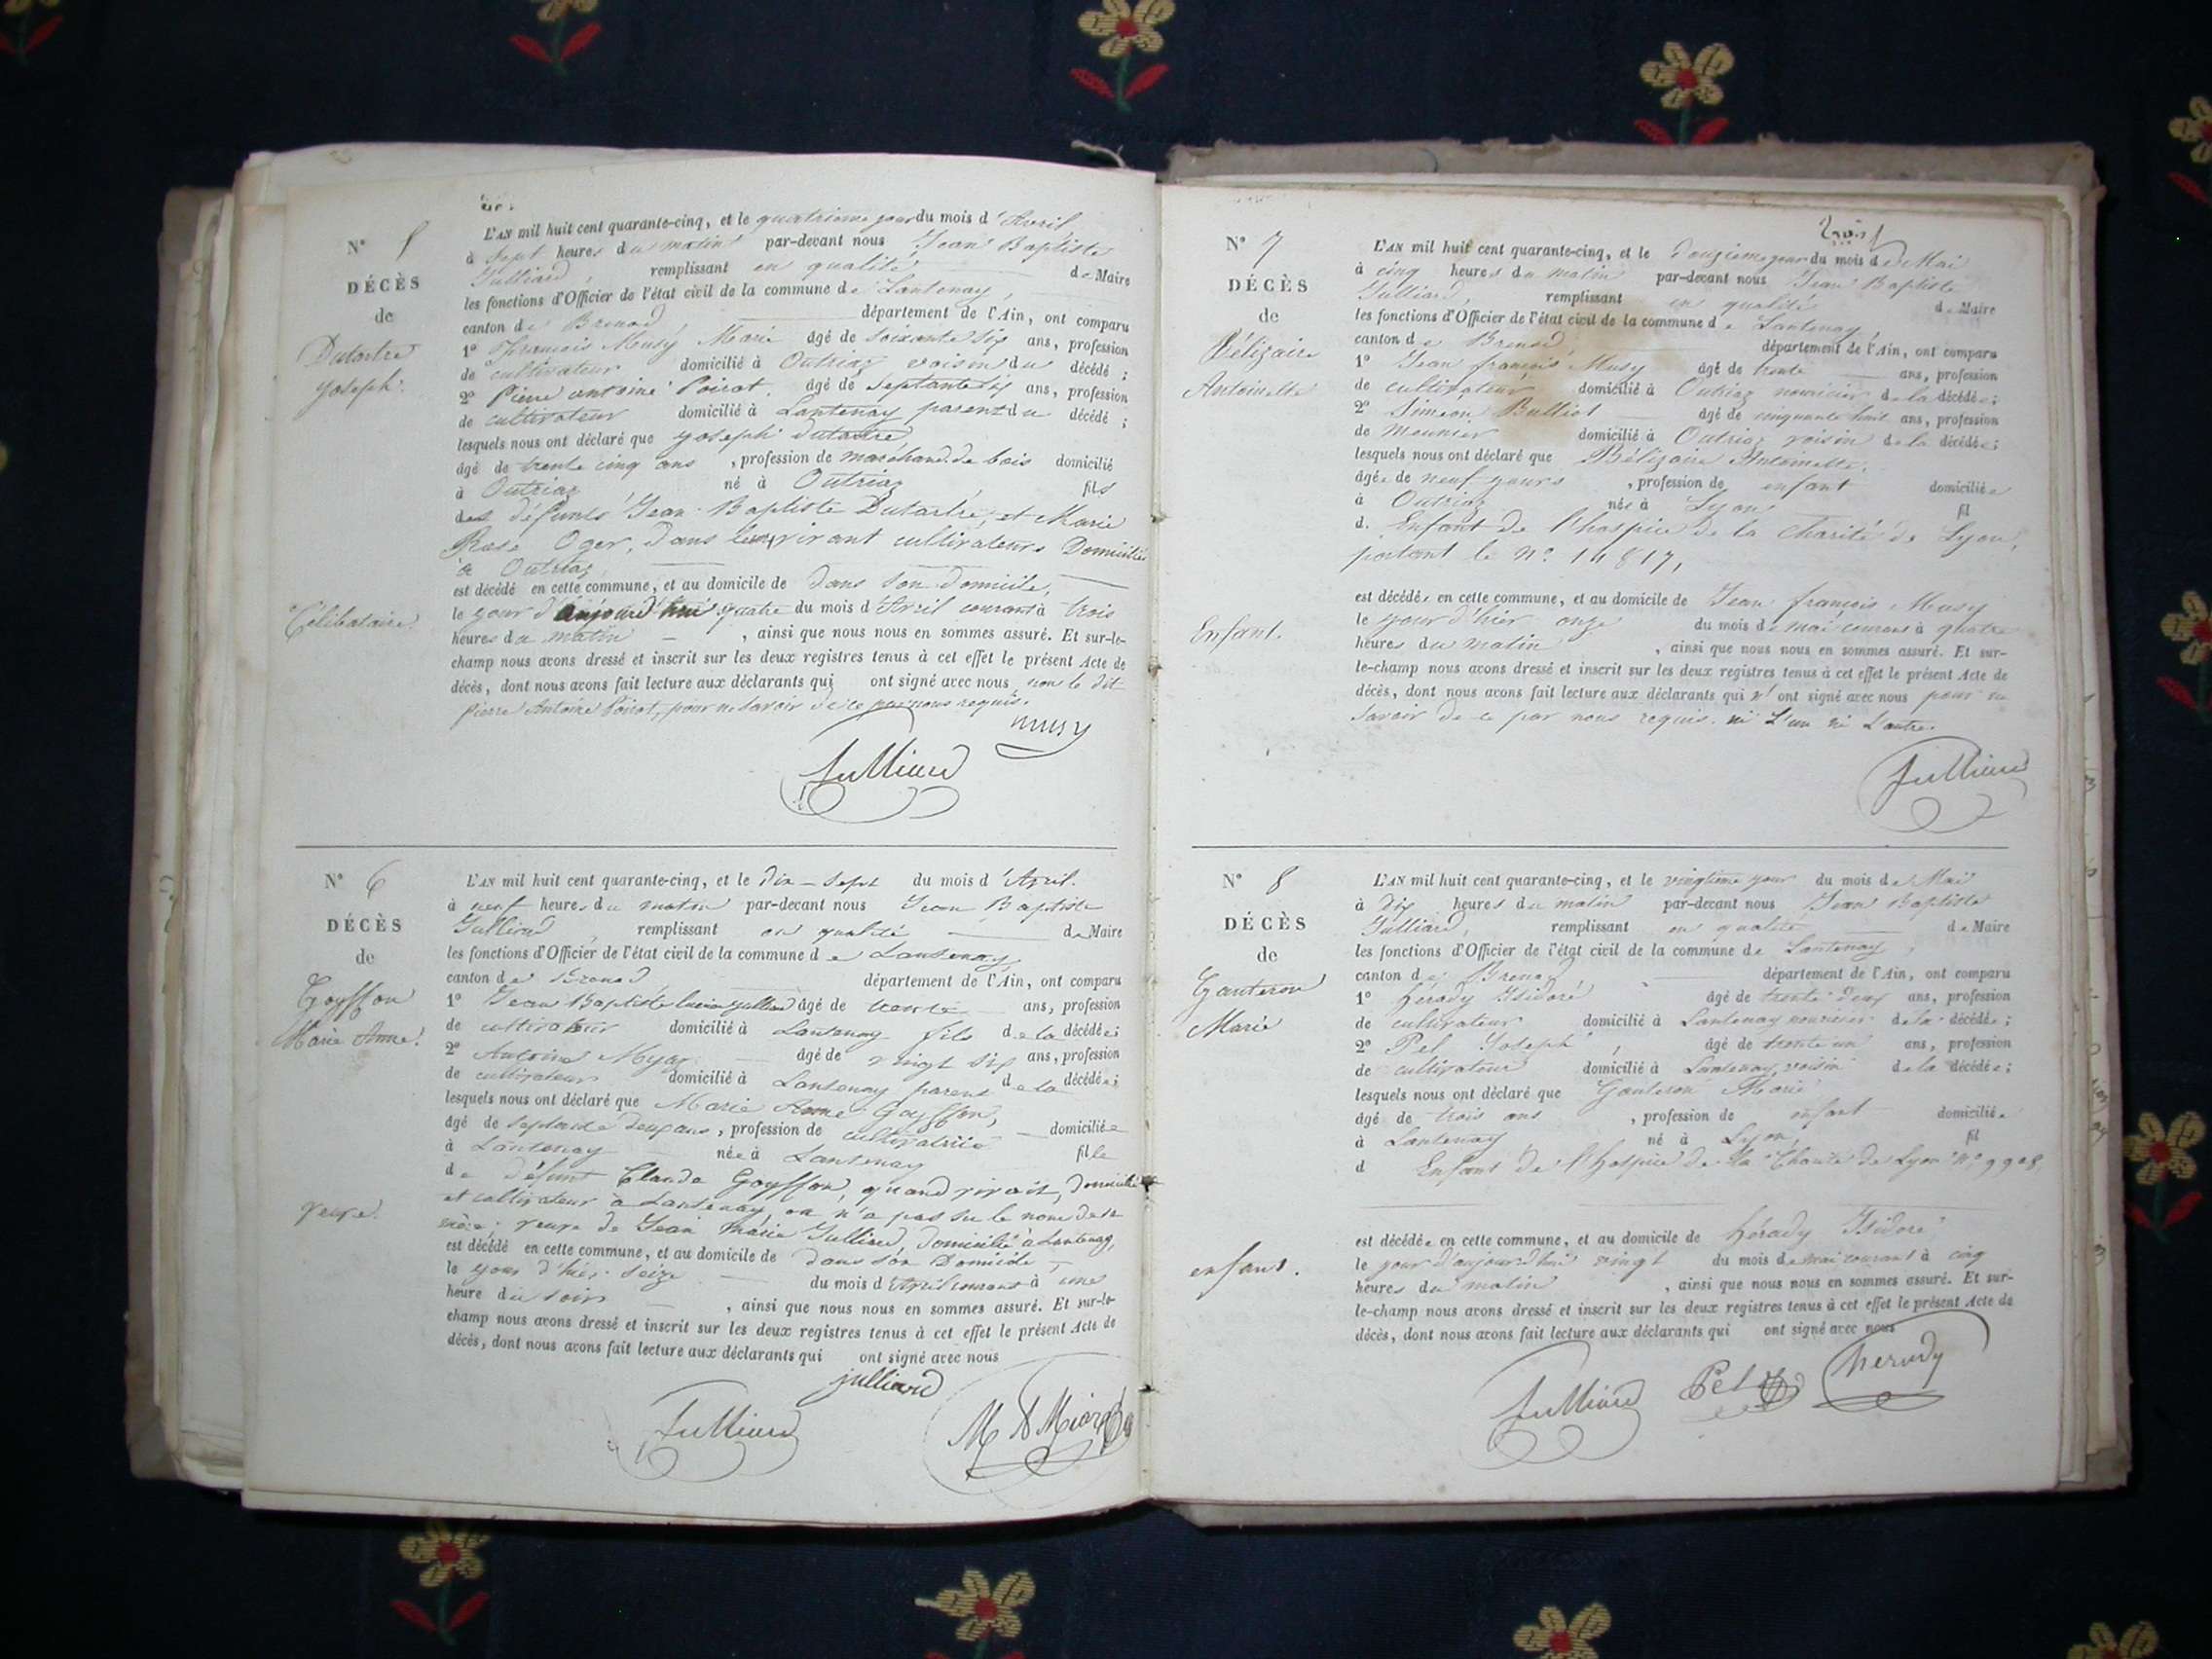 L'AN mil huit cent quarante-cinq, et le quatrième jour du mois d'Avril
N° 5
à sept heures du matin par-devant nous Jean Baptiste
Julliard, remplissant en qualité de Maire
DÉCÈS
les fonctions d'Officier de l'état civil de la commune de Lantenay,
de
canton de Brenod, département de l'Ain, ont comparu
Dutartre
1° François Musy Marie âgé de soixante six ans, profession
Joseph.
de cultivateur domicilié à Outriaz voisin du décédé ;
2° Pierre antoine Poirot, âgé de septante six ans, profession
de cultivateur domicilié à Lantenay, parent du décédé ;
lesquels nous ont déclaré que Joseph dutartre,
âgé de trente cinq ans , profession de marchand de bois domicilié
à Outriaz né à Outriaz fils
des défunts Jean-Baptiste Dutartre, et Marie
Rose Oger, dans leur vivant cultivateurs Domiciliés
à Outriaz,
est décédé en cette commune, et au domicile de dans son domicile,
Célibataire.
le jour d'aujourd'hui quatre du mois d'Avril courant à trois
heures du matin , ainsi que nous nous en sommes assuré. Et sur-le-
champ nous avons dressé et inscrit sur les deux registres tenus à cet effet le présent Acte de
décès, dont nous avons fait lecture aux déclarants qui ont signé avec nous, non le dit
Pierre Antoine Poirot, pour ne savoir de ce par nous requis.
musy
Julliard
N° 6
L'AN mil huit cent quarante-cinq, et le dix-sept du mois d'Avril.
à neuf heures du matin par-devant nous Jean Baptiste
DÉCÈS
Julliard, remplissant en qualité de Maire
de
les fonctions d'Officier de l'état civil de la commune de Lantenay,
canton de Brenod département de l'Ain, ont comparu
Goyffon
1° Jean Baptiste Julliard âgé de trente ans, profession
Marie Anne.
de cultivateur domicilié à Lantenay fils de la décédée ;
2° Antoine âgé de vingt six ans, profession
de cultivateur domicilié à Lantenay parent de la décédée ;
lesquels nous ont déclaré que Marie Anne Goyffon,
âgé de septante deux ans, profession de cultivatrice domiciliée
à Lantenay née à Lantenay fille
de défunt Claude Goyffon, quand vivait, domicilié
veuve.
et cultivateur à Lantenay, on n'a pas su le nom de sa
mère ; veuve de Jean Marie Julliard domicilié à Lantenay,
est décédé en cette commune, et au domicile de dans son Domicile,
le jour d'hier seize du mois d'Avril courant à une
heure du soir , ainsi que nous nous en sommes assuré. Et sur-le-
champ nous avons dressé et inscrit sur les deux registres tenus à cet effet le présent Acte de
décès, dont nous avons fait lecture aux déclarants qui ont signé avec nous
julliard
Julliard
Trois
N° 7
L'AN mil huit cent quarante-cinq, et le douzième jour du mois de Mai
à cinq heures du matin par-devant nous Jean Baptiste
DÉCÈS
Julliard, remplissant en qualité de Maire
de
les fonctions d'Officier de l'état civil de la commune de Lantenay,
canton de Brenod département de l'Ain, ont comparu
Bélizaire
1° Jean françois Musy âgé de trente ans, profession
Antoinette
de cultivateur domicilié à Outriaz nouricier de la décédée ;
2° Siméon Bulliot âgé de cinquante huit ans, profession
de meunier domicilié à Outriaz voisin de la décédée ;
lesquels nous ont déclaré que Bélizaire Antoinette,
âgée de neuf jours , profession de enfant domiciliée
à Outriaz née à Lyon fil
d. Enfant de l'hospice de la Charité de Lyon,
portant le n° 14817,
est décédée en cette commune, et au domicile de Jean françois Musy
Enfant.
le jour d'hier onze du mois de mai courant à quatre
heures du matin , ainsi que nous nous en sommes assuré. Et sur-
le-champ nous avons dressé et inscrit sur les deux registres tenus à cet effet le présent Acte de
décès, dont nous avons fait lecture aux déclarants qui n'ont signé avec nous pour ne
savoir de ce par nous requis. ni L'un ni L'autre.
Julliard
N° 8
L'AN mil huit cent quarante-cinq, et le vingtième jour du mois de Mai
à dix heures du matin par-devant nous Jean Baptiste
DÉCÈS
Julliard, remplissant en qualité de Maire
de
les fonctions d'Officier de l'état civil de la commune de Lantenay,
Ganteron
canton de Brenod département de l'Ain, ont comparu
1° hérady Isidore âgé de trente deux ans, profession
Marie
de cultivateur domicilié à Lantenay nouricier de la décédée ;
2° Pel Joseph, âgé de trente un ans, profession
de cultivateur domicilié à Lantenay, voisin de la décédée ;
lesquels nous ont déclaré que Ganteron Marie
âgé de trois ans , profession de enfant domiciliée
à Lantenay né à Lyon, fil
d Enfant de l'hospice de la Charité de Lyon n° 9908,
est décédée en cette commune, et au domicile de hérady Isidore
enfant.
le jour d'aujourd'hui vingt du mois de mai courant à cinq
heures du matin , ainsi que nous nous en sommes assuré. Et sur-
le-champ nous avons dressé et inscrit sur les deux registres tenus à cet effet le présent Acte de
décès, dont nous avons fait lecture aux déclarants qui ont signé avec nous
Julliard Pel herady